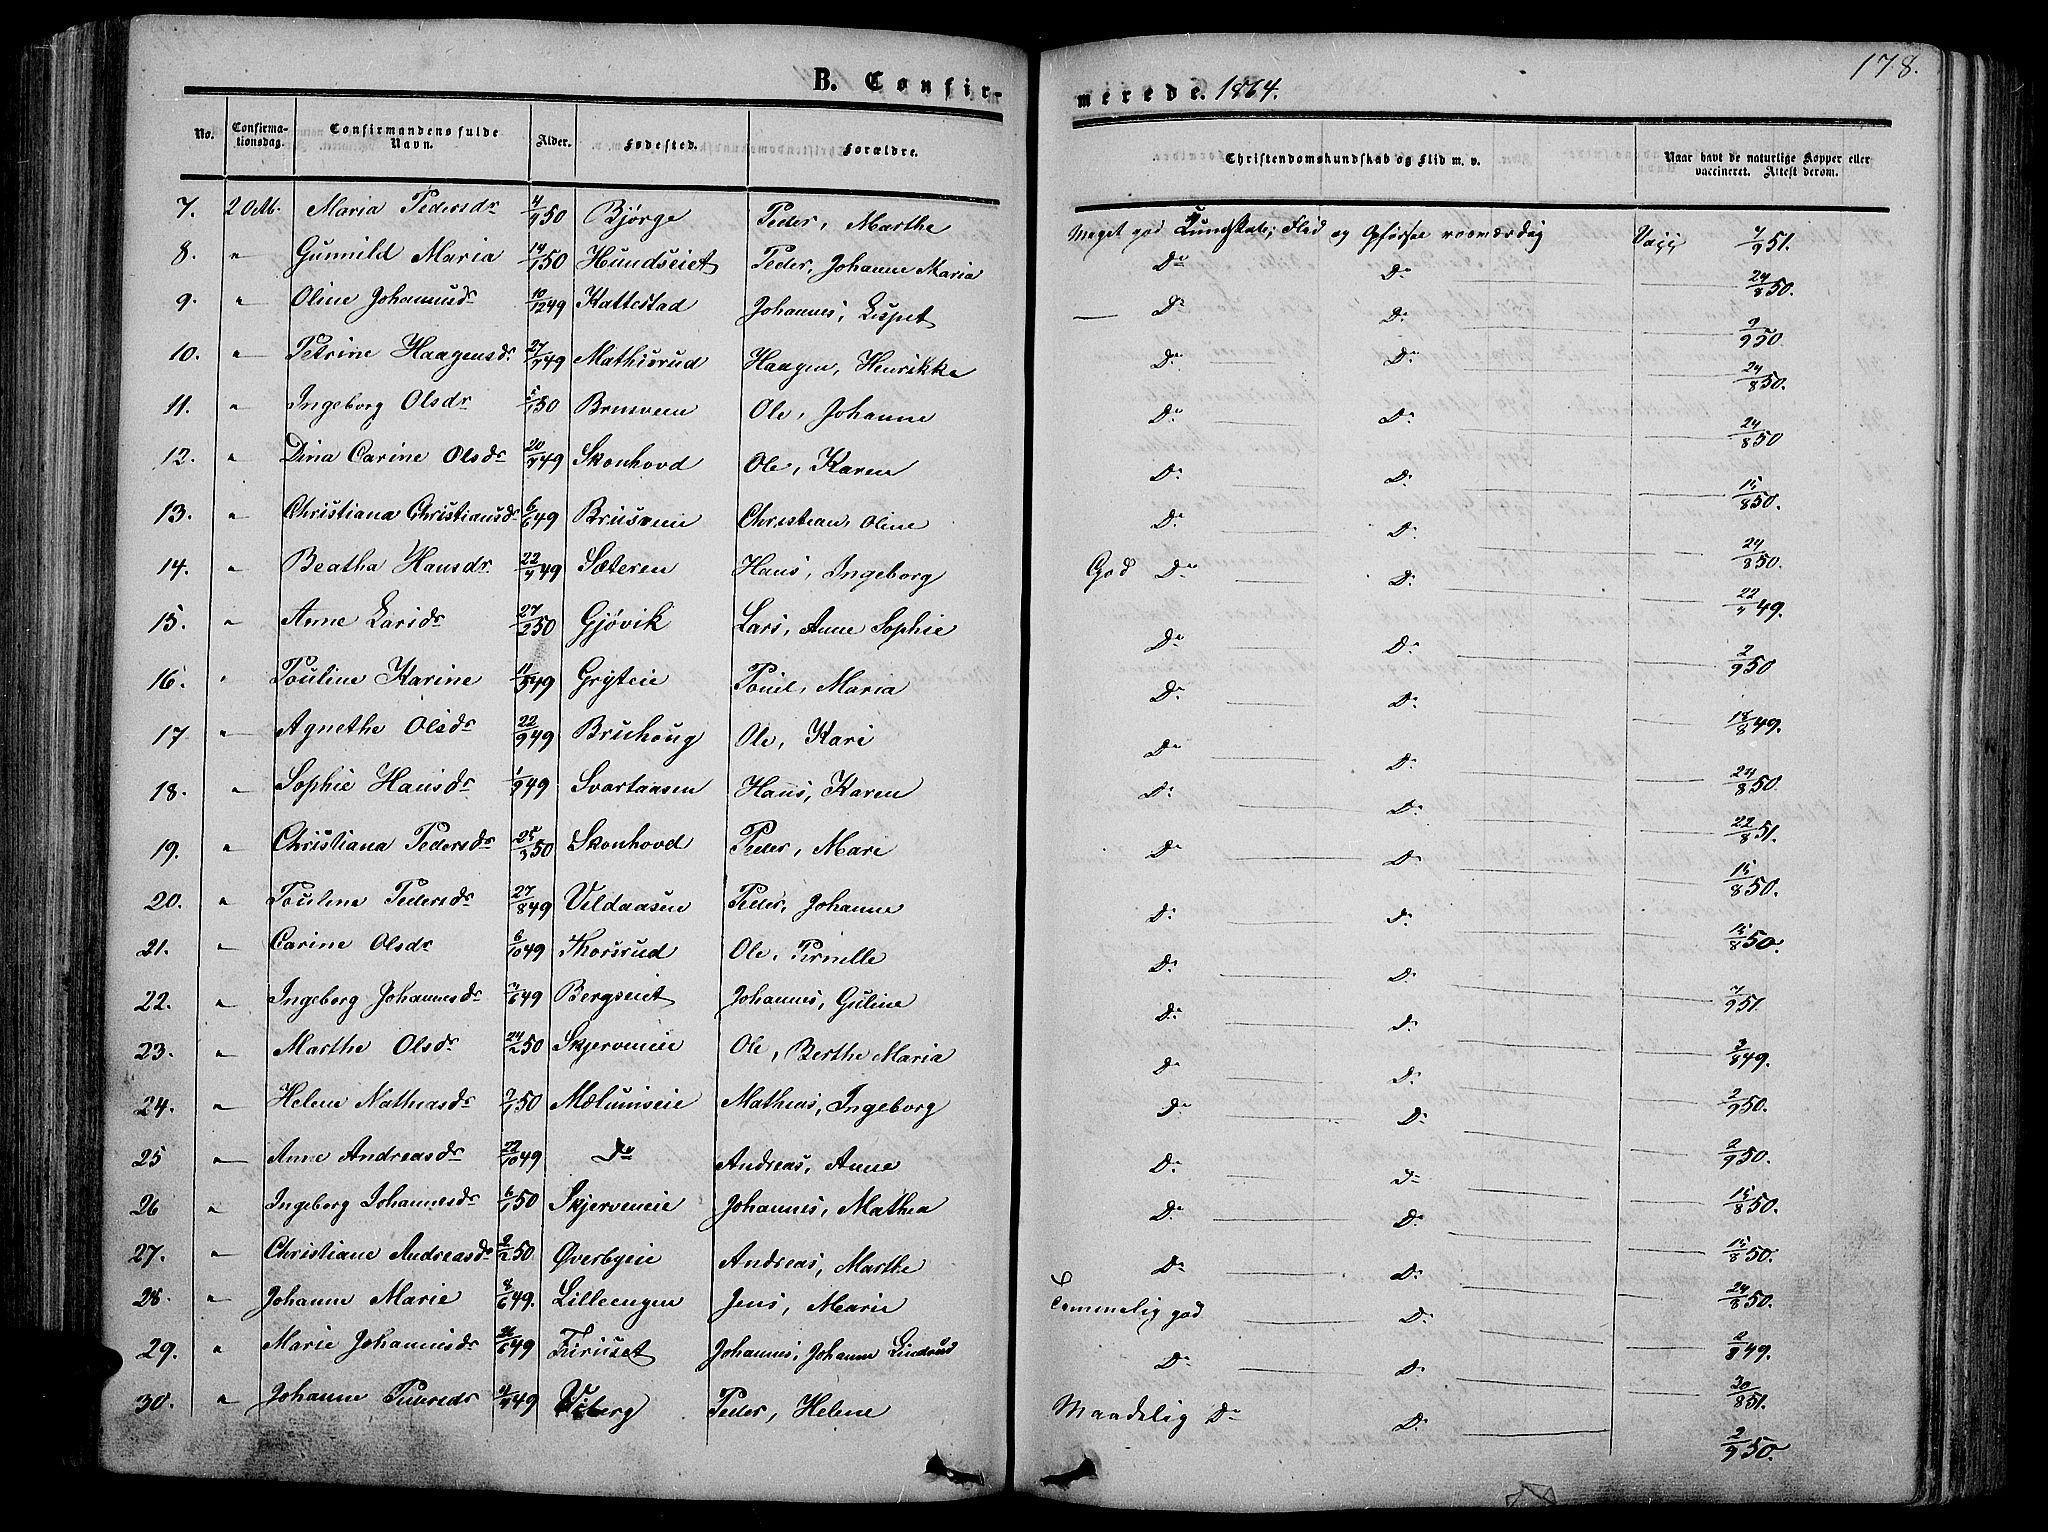 178.
B. Confirmerede. 1864.
No. | Confirmationsdag. | Confirmandens fulde Navn. | Alder. | Fødested. | Forældre. | Christendomskundskab og Flid m. v. | Naar havt de naturlige Kopper eller vaccineret. Attest derom.
7. 2 Oct. Maria Pedersdr 50 Bjørge Peder, Marthe Meget god Kundskab, Flid og Opførsel rosværdig Vacc 7/9 51.
8. " Gunnild Maria 14/1 50 Hundseiet Peder, Johanne Maria Do Do 24/8 50.
9. " Oline Johannesdr 10/12 49 Kattestad Johannes, Lispet Do Do 2/9 50
10. " Petrine Haagensdr 27/7 49 Mathisrud Haagen, Henrikke Do Do 24/8 50.
11. " Ingeborg Olsdr 50 Brusveen Ole, Johanne Do Do 24/8 50
12. " Dina Carine Olsdr 49 Skonhovd Ole, Karen Do Do 15/8 50.
13. " Christiana Christiansdr 6/6 49 Brusveen Christian, Oline Do Do 24/8 50.
14. " Beatha Hansdr 49 Sæteren Hans, Ingeborg God Do Do 49.
15. " Anne Larsdr 27/2 50 Gjøvik Lars, Anne Sophie Do Do 2/9 50
16. " Pouline Karine 49 Gryteie Pouel, Maria Do Do 18/8 49.
17 " Agnethe Olsdr 22/9 49 Bruhoug Ole, Kari Do Do 24/8 50.
18. " Sophie Hansdr 1/9 49 Svartaasen Hans, Karen Do Do 22/8 51.
19. " Christiana Pedersdr 25/3 50 Skonhovd Peder, Mari Do Do 15/8 50.
20. " Pouline Pedersdr 27/8 49 Veldaasen Peder, Johanne Do Do 15/8 50.
21. " Carine Olsdr 6/10 49 Thorsrud Ole, Pernille Do Do 7/9 51.
22. " Ingeborg Johannesdr 49 Bergseiet Johannes, Guline Do Do 3/8 49.
23. " Marthe Olsdr 24/2 50 Skjerveneie Ole, Berthe Maria Do Do 2/9 50.
24. " Helene Mathiasdr 50 Mælumseie Mathias, Ingeborg Do Do 2/9 50.
25 " Anne Andreasdr 22/10 49 Do Andreas, Anne Do Do 15/8 50.
26 " Ingeborg Johannesdr 6/1 50 Skjerveneie Johannes, Mathea Do Do 15/8 50.
27. " Christiane Andreasdr 2/2 50 Øverbyeie Andreas, Marthe Do Do 24/8 50.
28. " Johanne Marie 8/6 49. Lilleengen Jens, Marie Temmelig god Do 2/8 49.
29. " Marie Johannisdr 26/6 49 Furuset Johannes, Johanne Lindsrud Do Do 30/8 51.
30. " Johanne 49 Viberg Peder, Helene Maadelig Do Do 2/9 50.